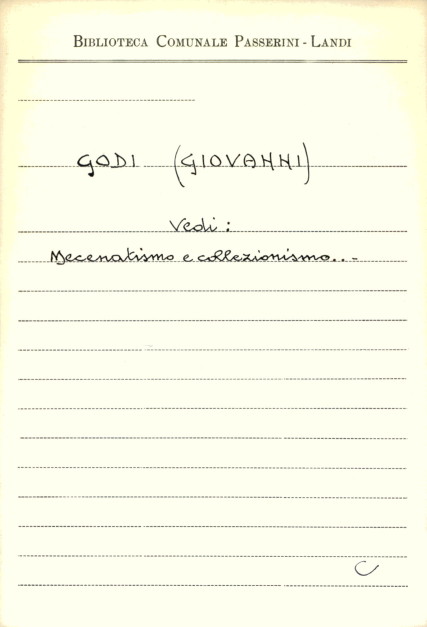 BIBLIOTECA COMUNALE PASSERINI-LANDI
GODI (GIOVANNI)
Vedi:
Mecenatismo e collezionismo..-
C